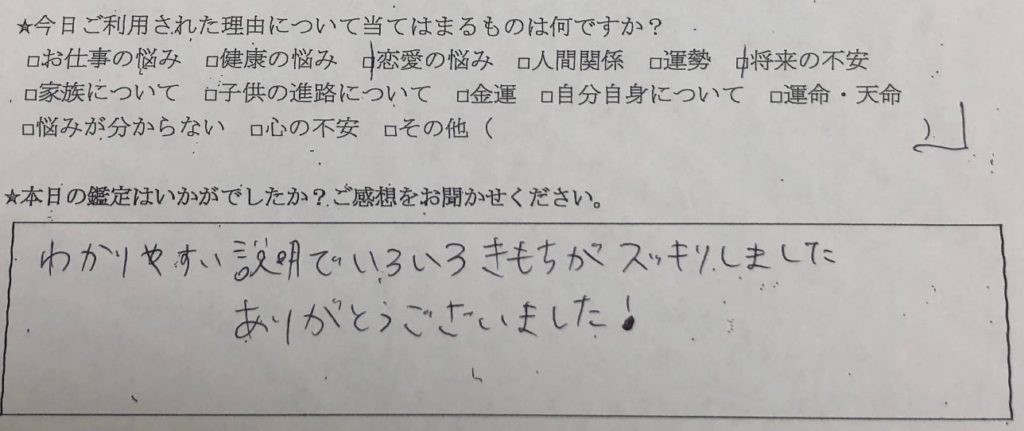 ★今日ご利用された理由について当てはまるものは何ですか？
□お仕事の悩み □健康の悩み □恋愛の悩み □人間関係 □運勢 □将来の不安
□家族について □子供の進路について □金運 □自分自身について □運命・天命
□悩みが分からない □心の不安 □その他（ ）
★本日の鑑定はいかがでしたか？ご感想をお聞かせください。
わかりやすい説明でいろいろきもちがスッキリしました
ありがとうございました！